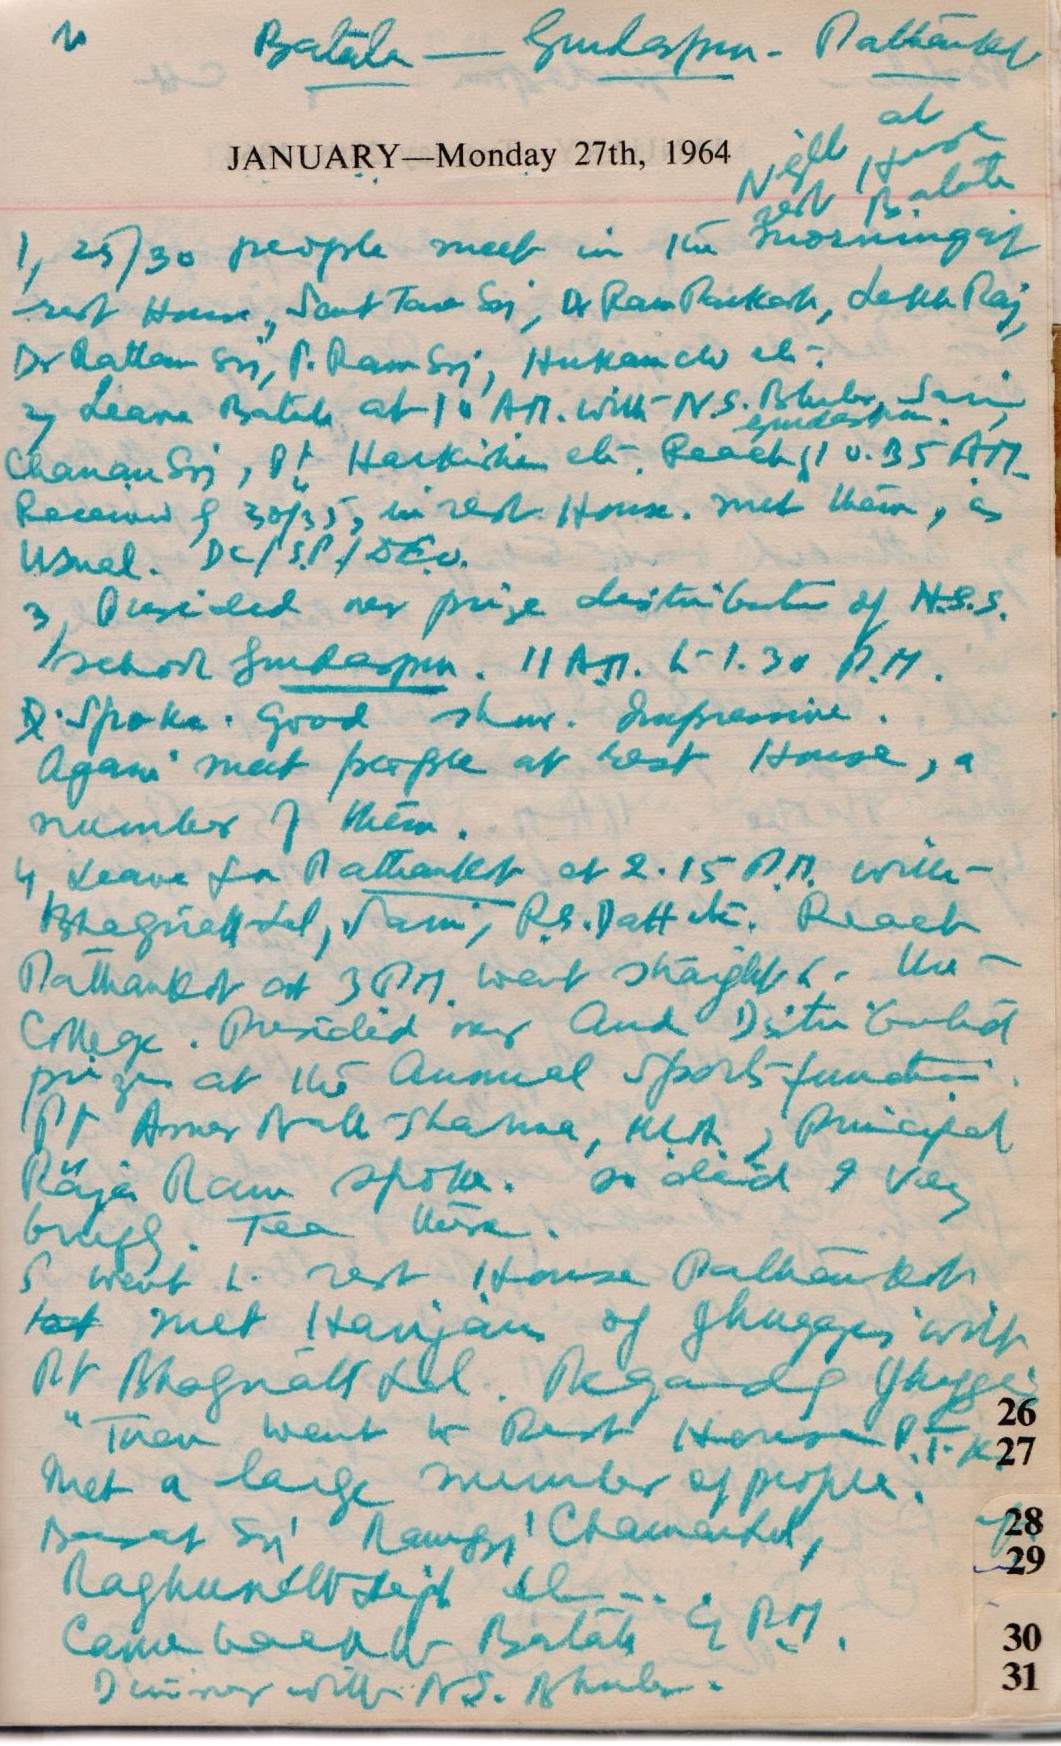 Batala — Gurdaspur - Pathankot
JANUARY—Monday 27th, 1964
Night at
rest House
Batala
1, 25/30 people meet in the morning at
rest House, Sant Tara Sgj, Dr Ram Parkash, Lekh Raj,
Dr Rattan Sgj, P. Ram Sgj, Hukam etc.
2, Leave Batala at 10 AM. with N.S. Bhuler, Saini,
Gurdaspur.
Chanan Sgj, Pt Harkishen etc. Reach 10.35 AM.
Received by 30/35, in rest House. met them, as
Usual. DC/S.P./DEO.
3, Presided over prize distribution of H.S.S.
School Gurdaspur. 11 AM. to 1.30 P.M.
Spoke. Good show. Impressive.
Again meet people at rest House, a
number of them.
4, Leave for Pathankot at 2.15 P.M. with
Bhagnatt Lal, Saini, R.S. Datt etc. Reach
Pathankot at 3 PM. went straight to the
College. Presided over and Distributed
prizes at the Annual Sports function.
Pt Amar Nath Sharma, MLA, Principal
Raja Ram spoke. so did I very
briefly. Tea there.
5 went to rest House Pathankot
met Harijans of Jhuggis with
Pt Bhagnatt Lal. Regarding Jhuggis
"Then went to Rest House P.T.K.
Met a large number of people.
Sgj Chamanlal,
Raghunath etc
Came back to Batala 9 P.M.
Dinner with N.S. Bhuler.
26
27
28
29
30
31